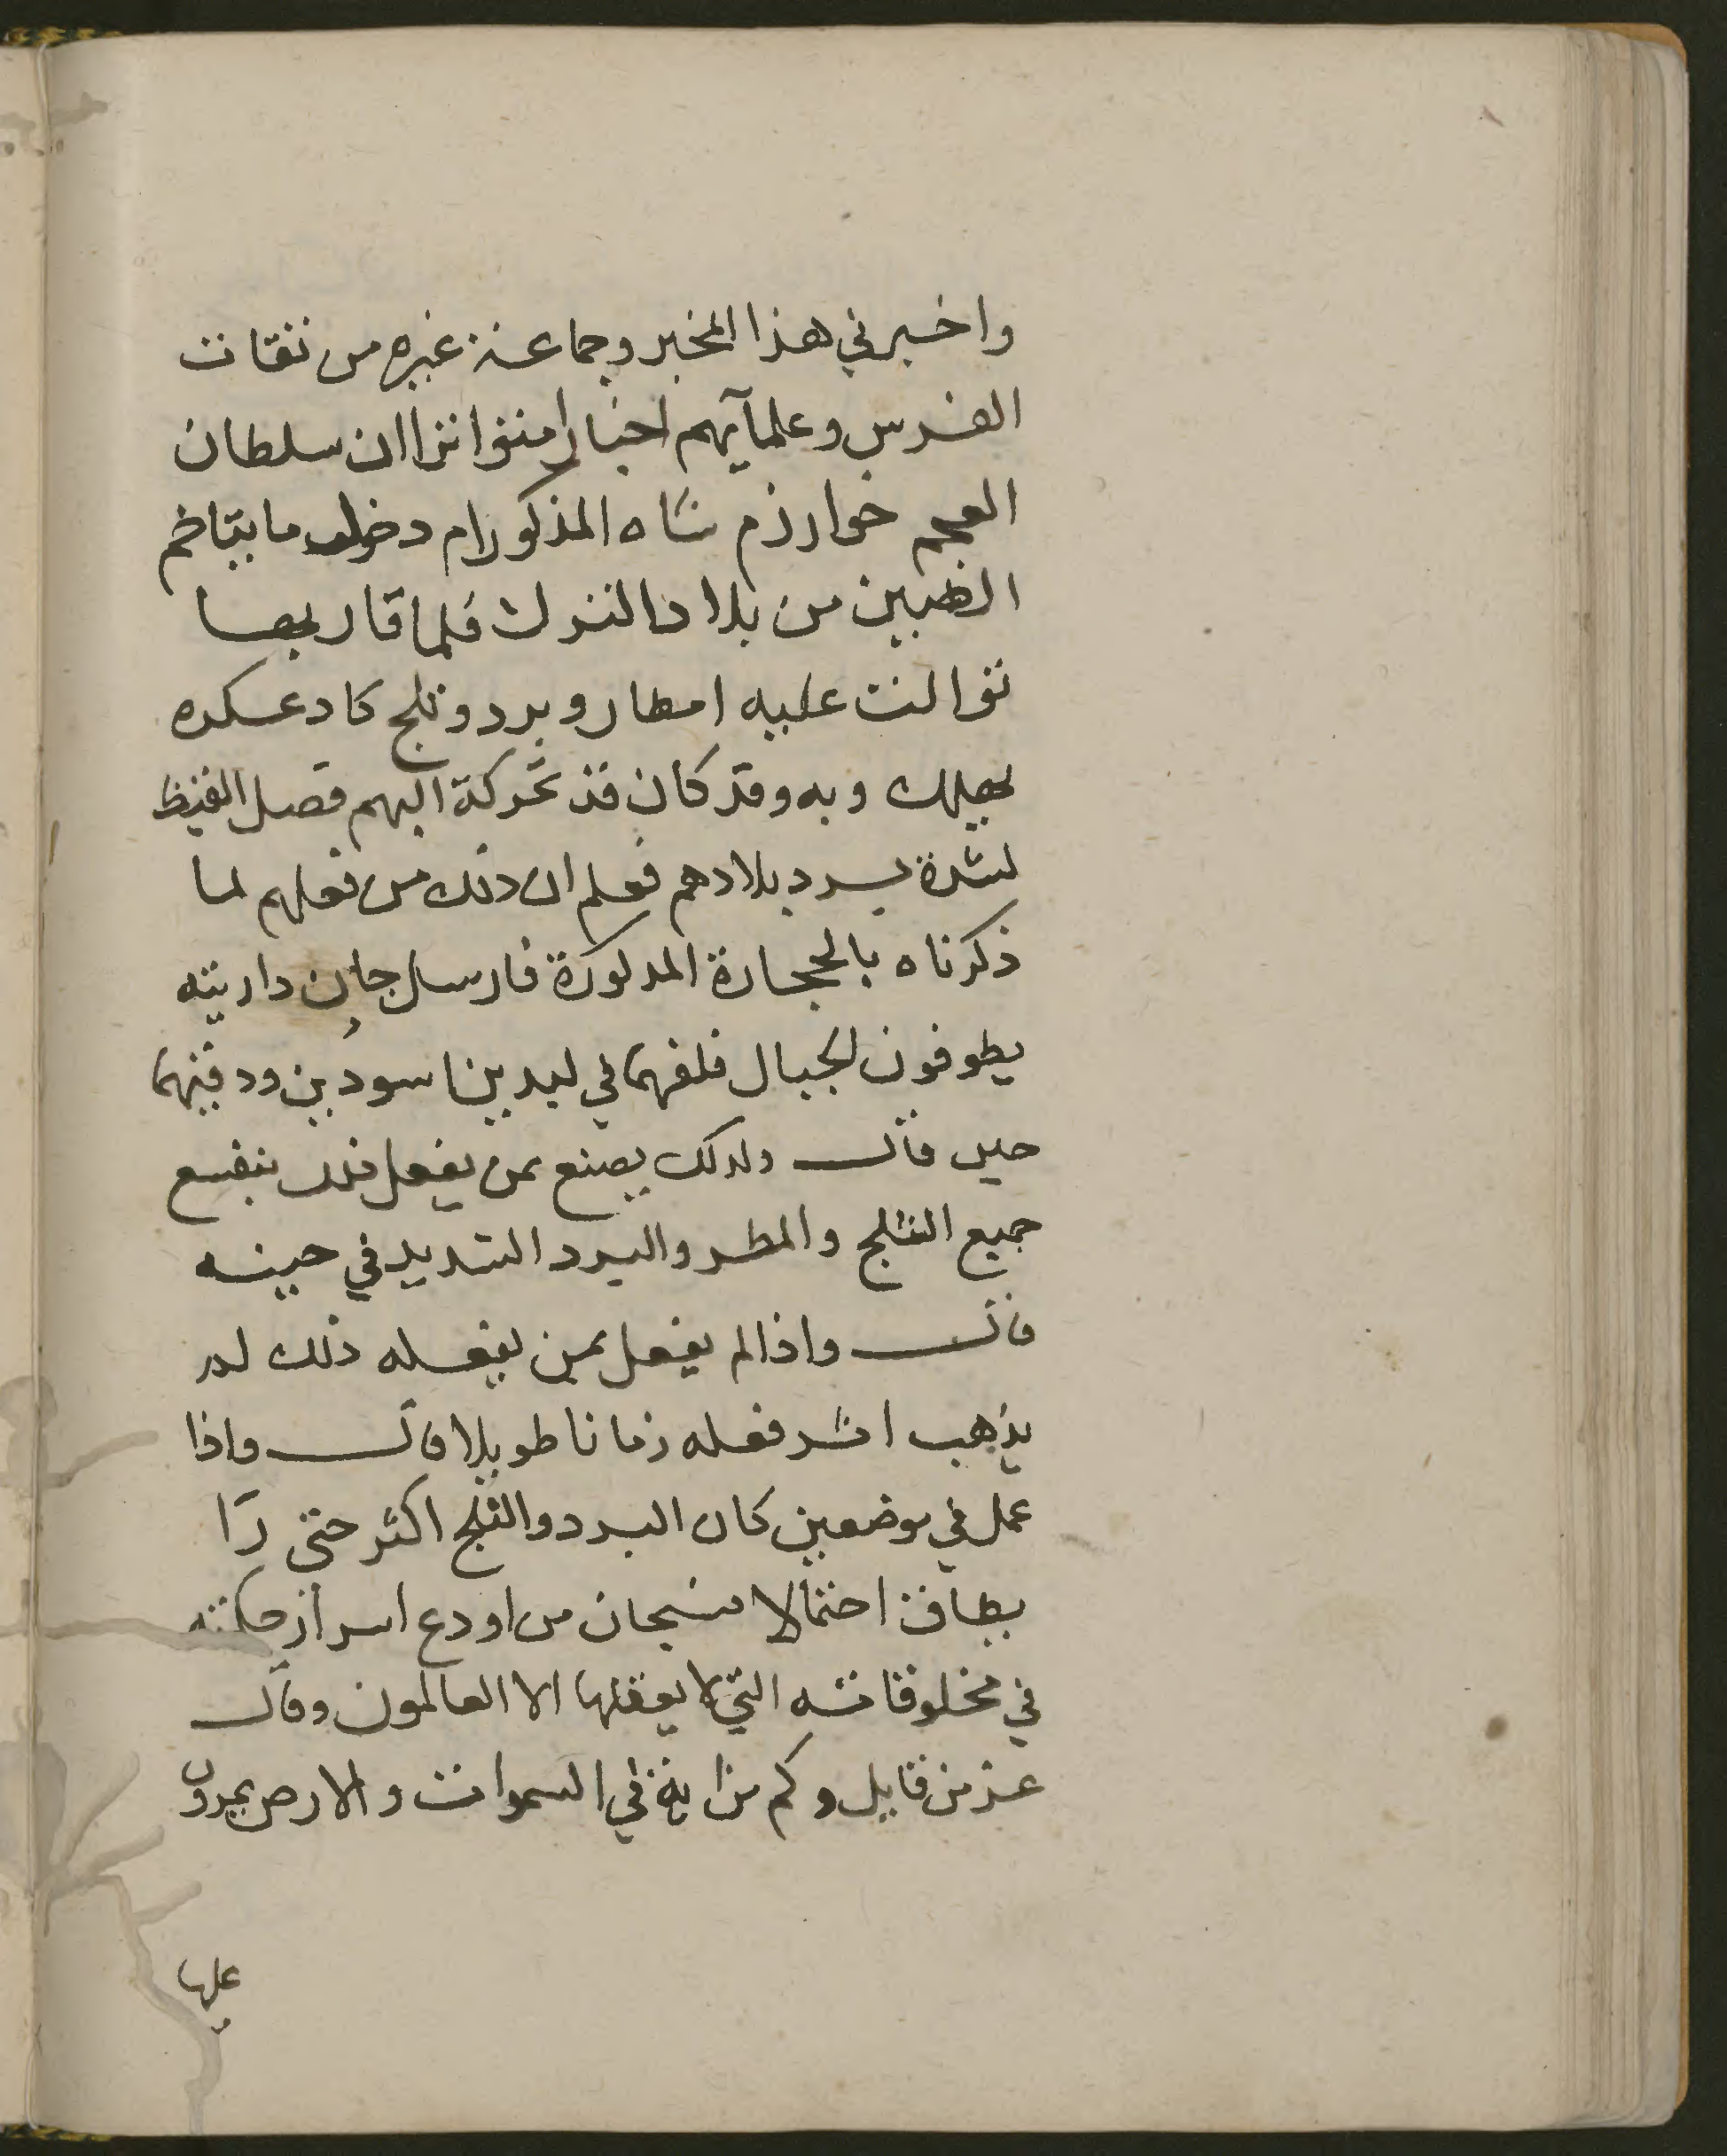 واخبرني هذا المخبر وجماعة غيره من ثقات
الفرس وعلمآيهم اخبارا متواترا ان سلطان
العجم خوارزم شاه المذكور رام دخول ما يتاخم
الصين من بلاد الترك فلما قاربها
توالت عليه امطار وبرد وثلج كاد عسكره
يهلك وبه وقد كان قد تحركة اليهم فصل القيظ
لشدة برد بلادهم فعلم ان ذلك من فعلهم لما
ذكرناه بالحجارة المذكورة فارسل جان داريته
يطوفون الجبال فلفهما في لبدين اسودين ودفنهما
حين قال وكذلك يصنع بمن يفعل ذلك
جميع الثلج والمطر والبرد الشديد في حينه
قال واذا لم يفعل بمن يفعله ذلك لم
يذهب اثر فعله زمانا طويلا قال واذا
عمل في موضعين كان البرد والثلج اكثر حتى
احتمالا فسبحان من اودع اسرار حكمته
في مخلوقاته التي لا يعقلها الا العالمون وقال
عز من قايل وكم من اية في السموات والارض يمرون
عليها